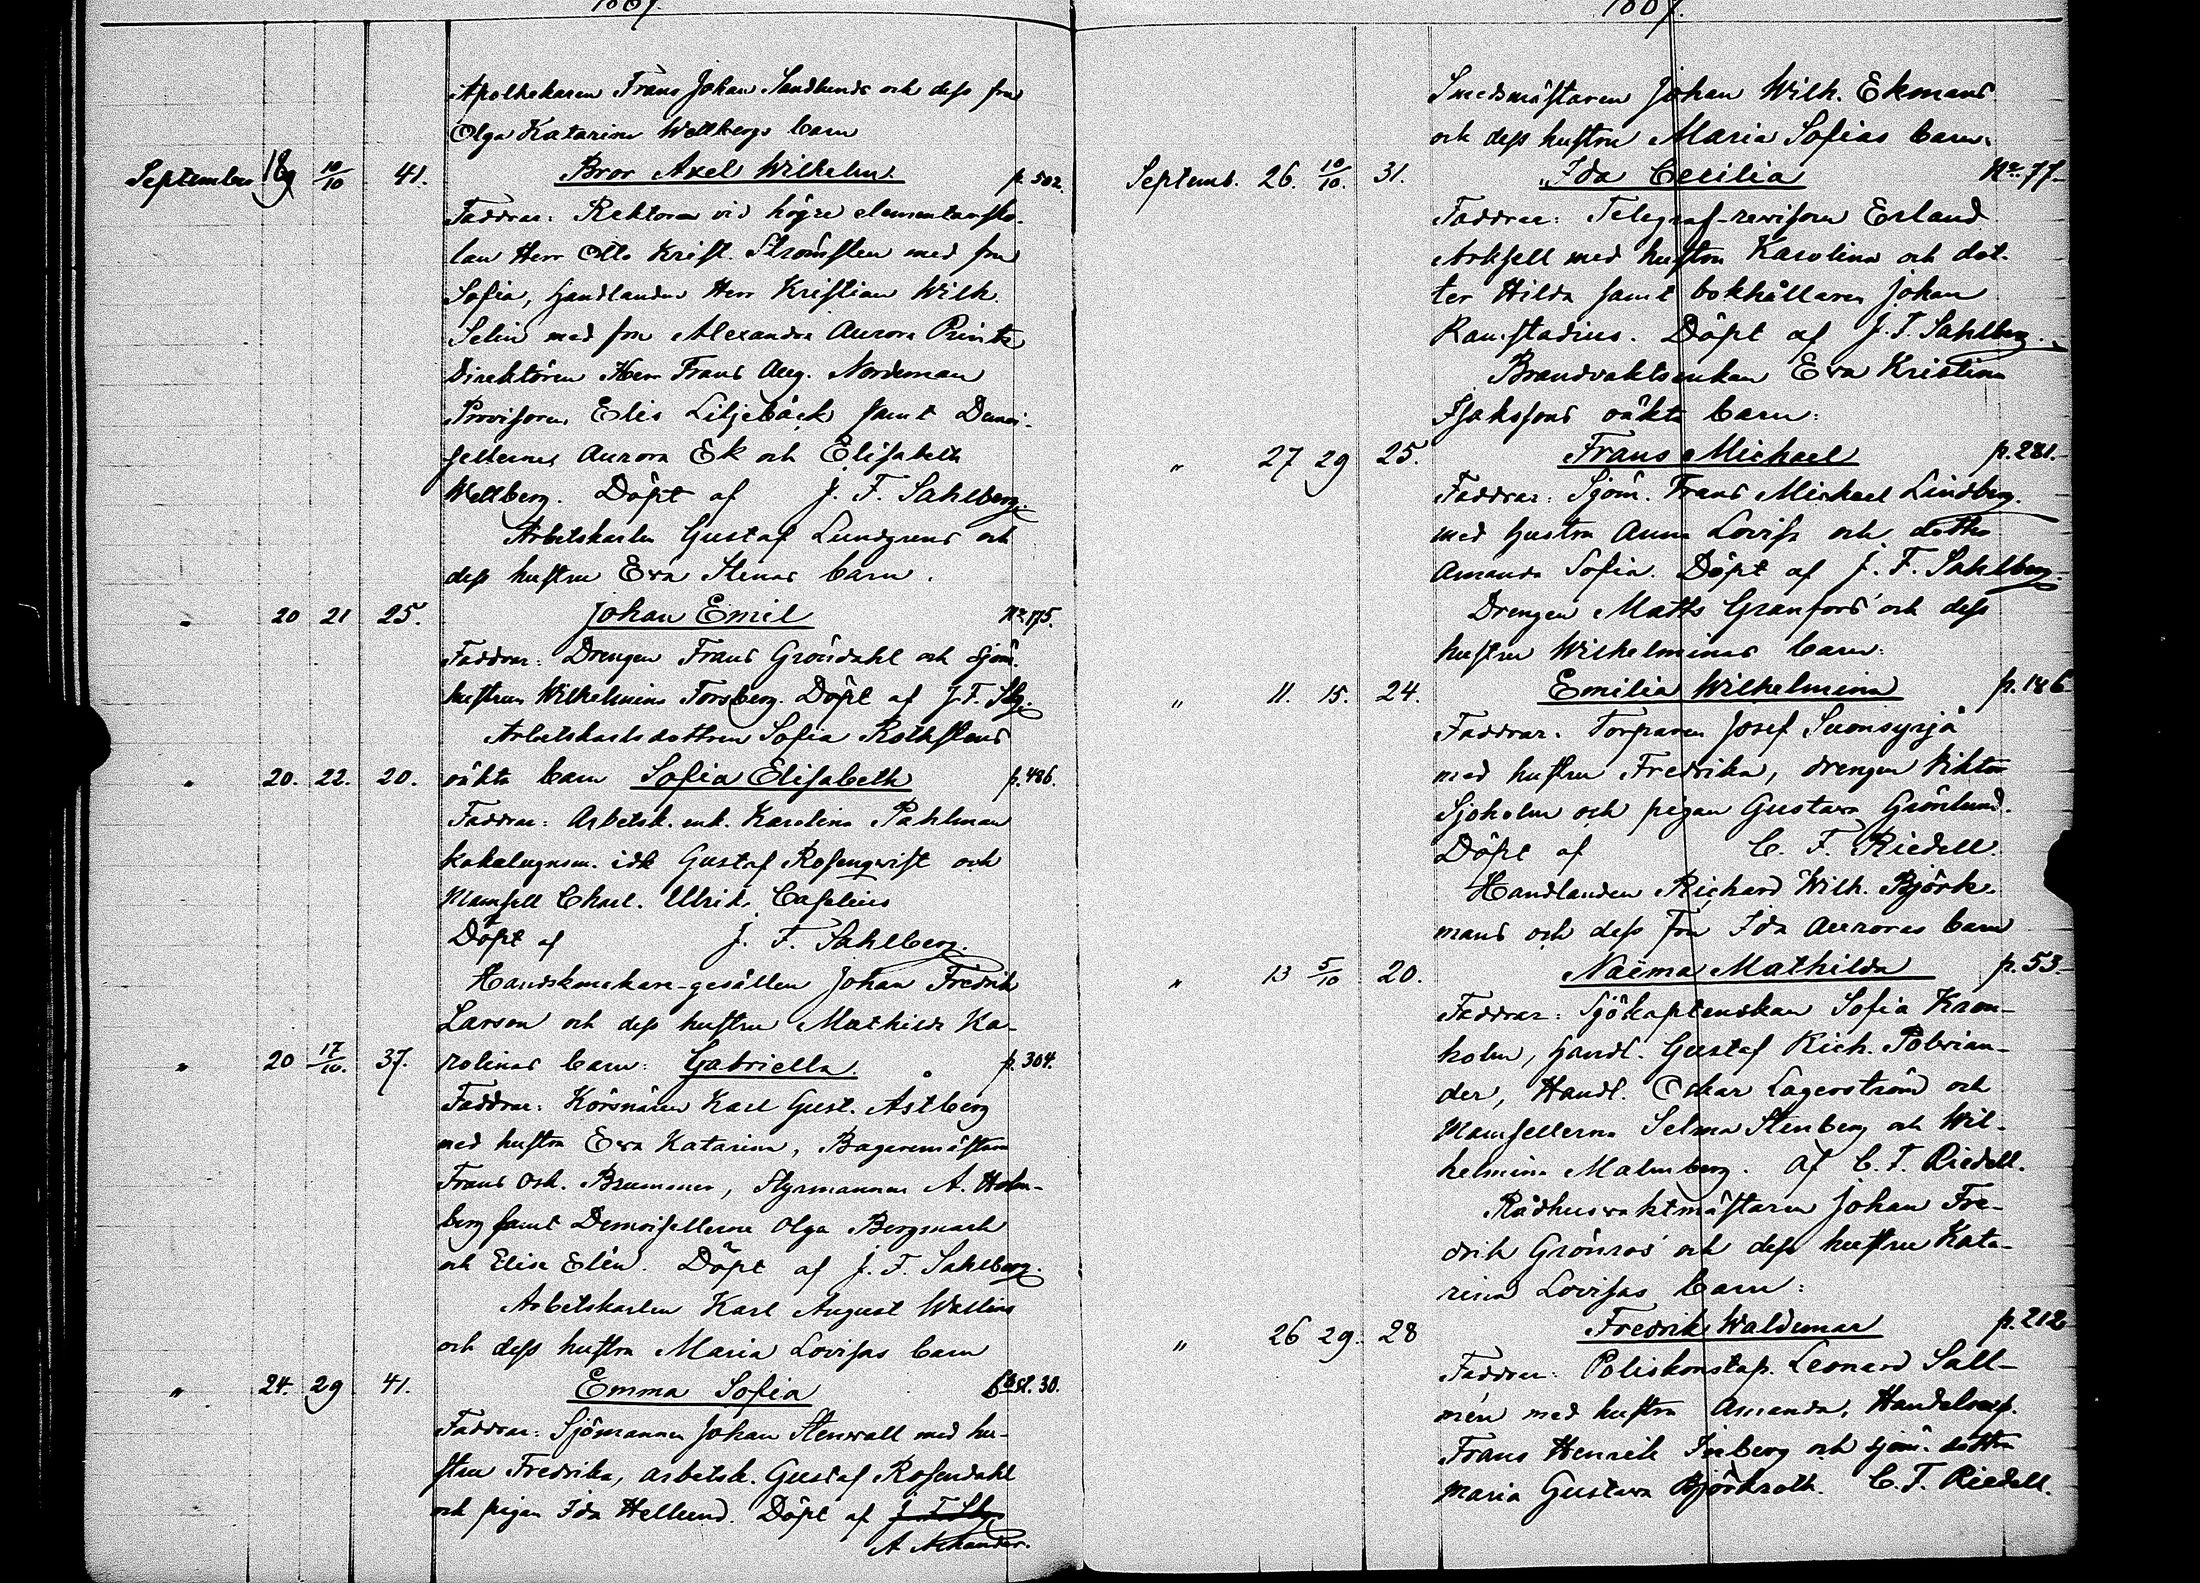 1867.
Apothekaren Frans Johan Sandlunds och dess fru
Olga Katarina Wellbergs barn
September 18 10/10 41. Bror Axel Wilhelm p. 502.
Faddrar: Rektorn vid högre elementarsko-
lan Herr Otto Krist. Strömsten med fru
Sofia, Handlanden Herr Kristian Wilh.
Selin med fru Alexandra Aurora Printz
Direktören Herr Frans Aug. Nordeman
Provisorn Elis Liljebäck samt Demoi-
sellerna Aurora Ek och Elisabeth
Wellberg. Döpt af J. F. Sahlberg.
Arbetskarlen Gustaf Lundgrens och
dess hustru Eva Stinas barn.
" 20 21 25. Johan Emil No 175.
Faddrar: Drengen Frans Gröndahl och sjöm.
hustrun Wilhelmina Forsberg. Döpt af J. F. Slbg.
Arbetskarlsdottren Sofia Rothstens
" 20. 22. 20. oäkta barn Sofia Elisabeth p. 486.
Faddrar: Arbetsk. enk. Karolina Påhlman
kakelugnsm. idk Gustaf Rosenqvist och
Mamsell Charl. Ulrik. Caselius
Döpt af J. F. Sahlberg.
Handskmakare-gesällen Johan Fredrik
Larson och dess hustru Mathilda Ka-
" 20 17/10. 37. rolinas barn: Gabriella. p. 304.
Faddrar: Körsnären Karl Gust. Åstberg
med hustru Eva Katarina, Bagaremästaren
Frans Osk. Brummer, Styrmannen A. Holm-
berg samt Demoisellerna Olga Bergmark
och Elise Elén. Döpt af J. F. Sahlberg.
Arbetskarlen Karl August Wallins
och dess hustru Maria Lovisas barn
" 24. 29 41. Emma Sofia 30.
Faddrar: Sjömannen Johan Stenwall med hu-
stru Fredrika, arbetsk. Gustaf Rosendahl
och pigan Ida Hellund. Döpt af J. F. Slbg
A.
1867.
Smedsmästaren Johan Wilh. Ekmans
och dess hustru Maria Sofias barn:
Septemb. 26. 10/10. 31. Ida Cecilia No. 77.
Faddrar: Telegraf-revisorn Erland
med hustru Karolina och dot-
ter Hilda samt bokhållaren Johan
Ramstadius. Döpt af J. F. Sahlberg.
Brandvaktsenkan Eva Kristina
Isakssons oäkta barn:
" 27 29 25. Frans Michael p. 281.
Faddrar: Sjöm. Frans Michael Lindberg.
med hustru Anna Lovisa och dotter
Amanda Sofia. Döpt af J. F. Sahlberg.
Drengen Matts Granfors och dess
hustru Wilhelminas barn:
" 11. 15. 24. Emilia Wilhelmina p. 186
Faddrar. Torparen Josef Suonsyrjä
med hustru Fredrika, drengen Viktor
Sjöholm och pigan Gustava Grönlund.
Döpt af C. F. Riedell.
Handlanden Richard Wilh. Björk-
mans och dess Fru Ida Auroras barn
" 13 5/10 20. Naëma Mathilda p. 53
Faddrar: Sjökaptenskan Sofia Kron-
holm, Handl. Gustaf Rich. Polvian-
der, Handl. Oskar Lagerström och
Mamsellerna Selma Stenberg och Wil-
helmina Malmberg. Af C. F. Riedell.
Rådhusvaktmästaren Johan Fre-
drik Grönros' och dess hustru Kata-
rina Lovisas barn:
" 26 29. 28 Fredrik Waldemar p. 212
Faddrar: Poliskonstap. Leonard Sall-
mén med hustru Amanda, Handelsexp.
Frans Henrik Isberg och sjöm. dottren
Maria Gustava Björkroth. C. F. Riedell.